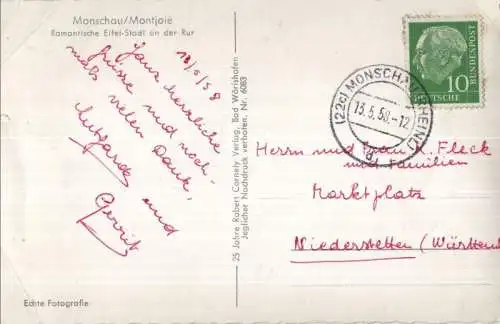 Monschau/Montjoie
Romantische Eifel-Stadt an der Rur
13/5/58
Ganz herzliche
Grüsse und noch-
mals vielen Dank,
Lutgarde und
Gerrit
Echte Fotografie
25 Jahre Robert Cornely Verlag, Bad Wörishofen
Jeglicher Nachdruck verboten. Nr. 6083
(22c) MONSCHAU (RHEINL)
13.5.58.-12
d
10
DEUTSCHE
BUNDESPOST
Herrn und Frau v. Fleck
und Familien
Marktplatz
Niederstetten (Württem